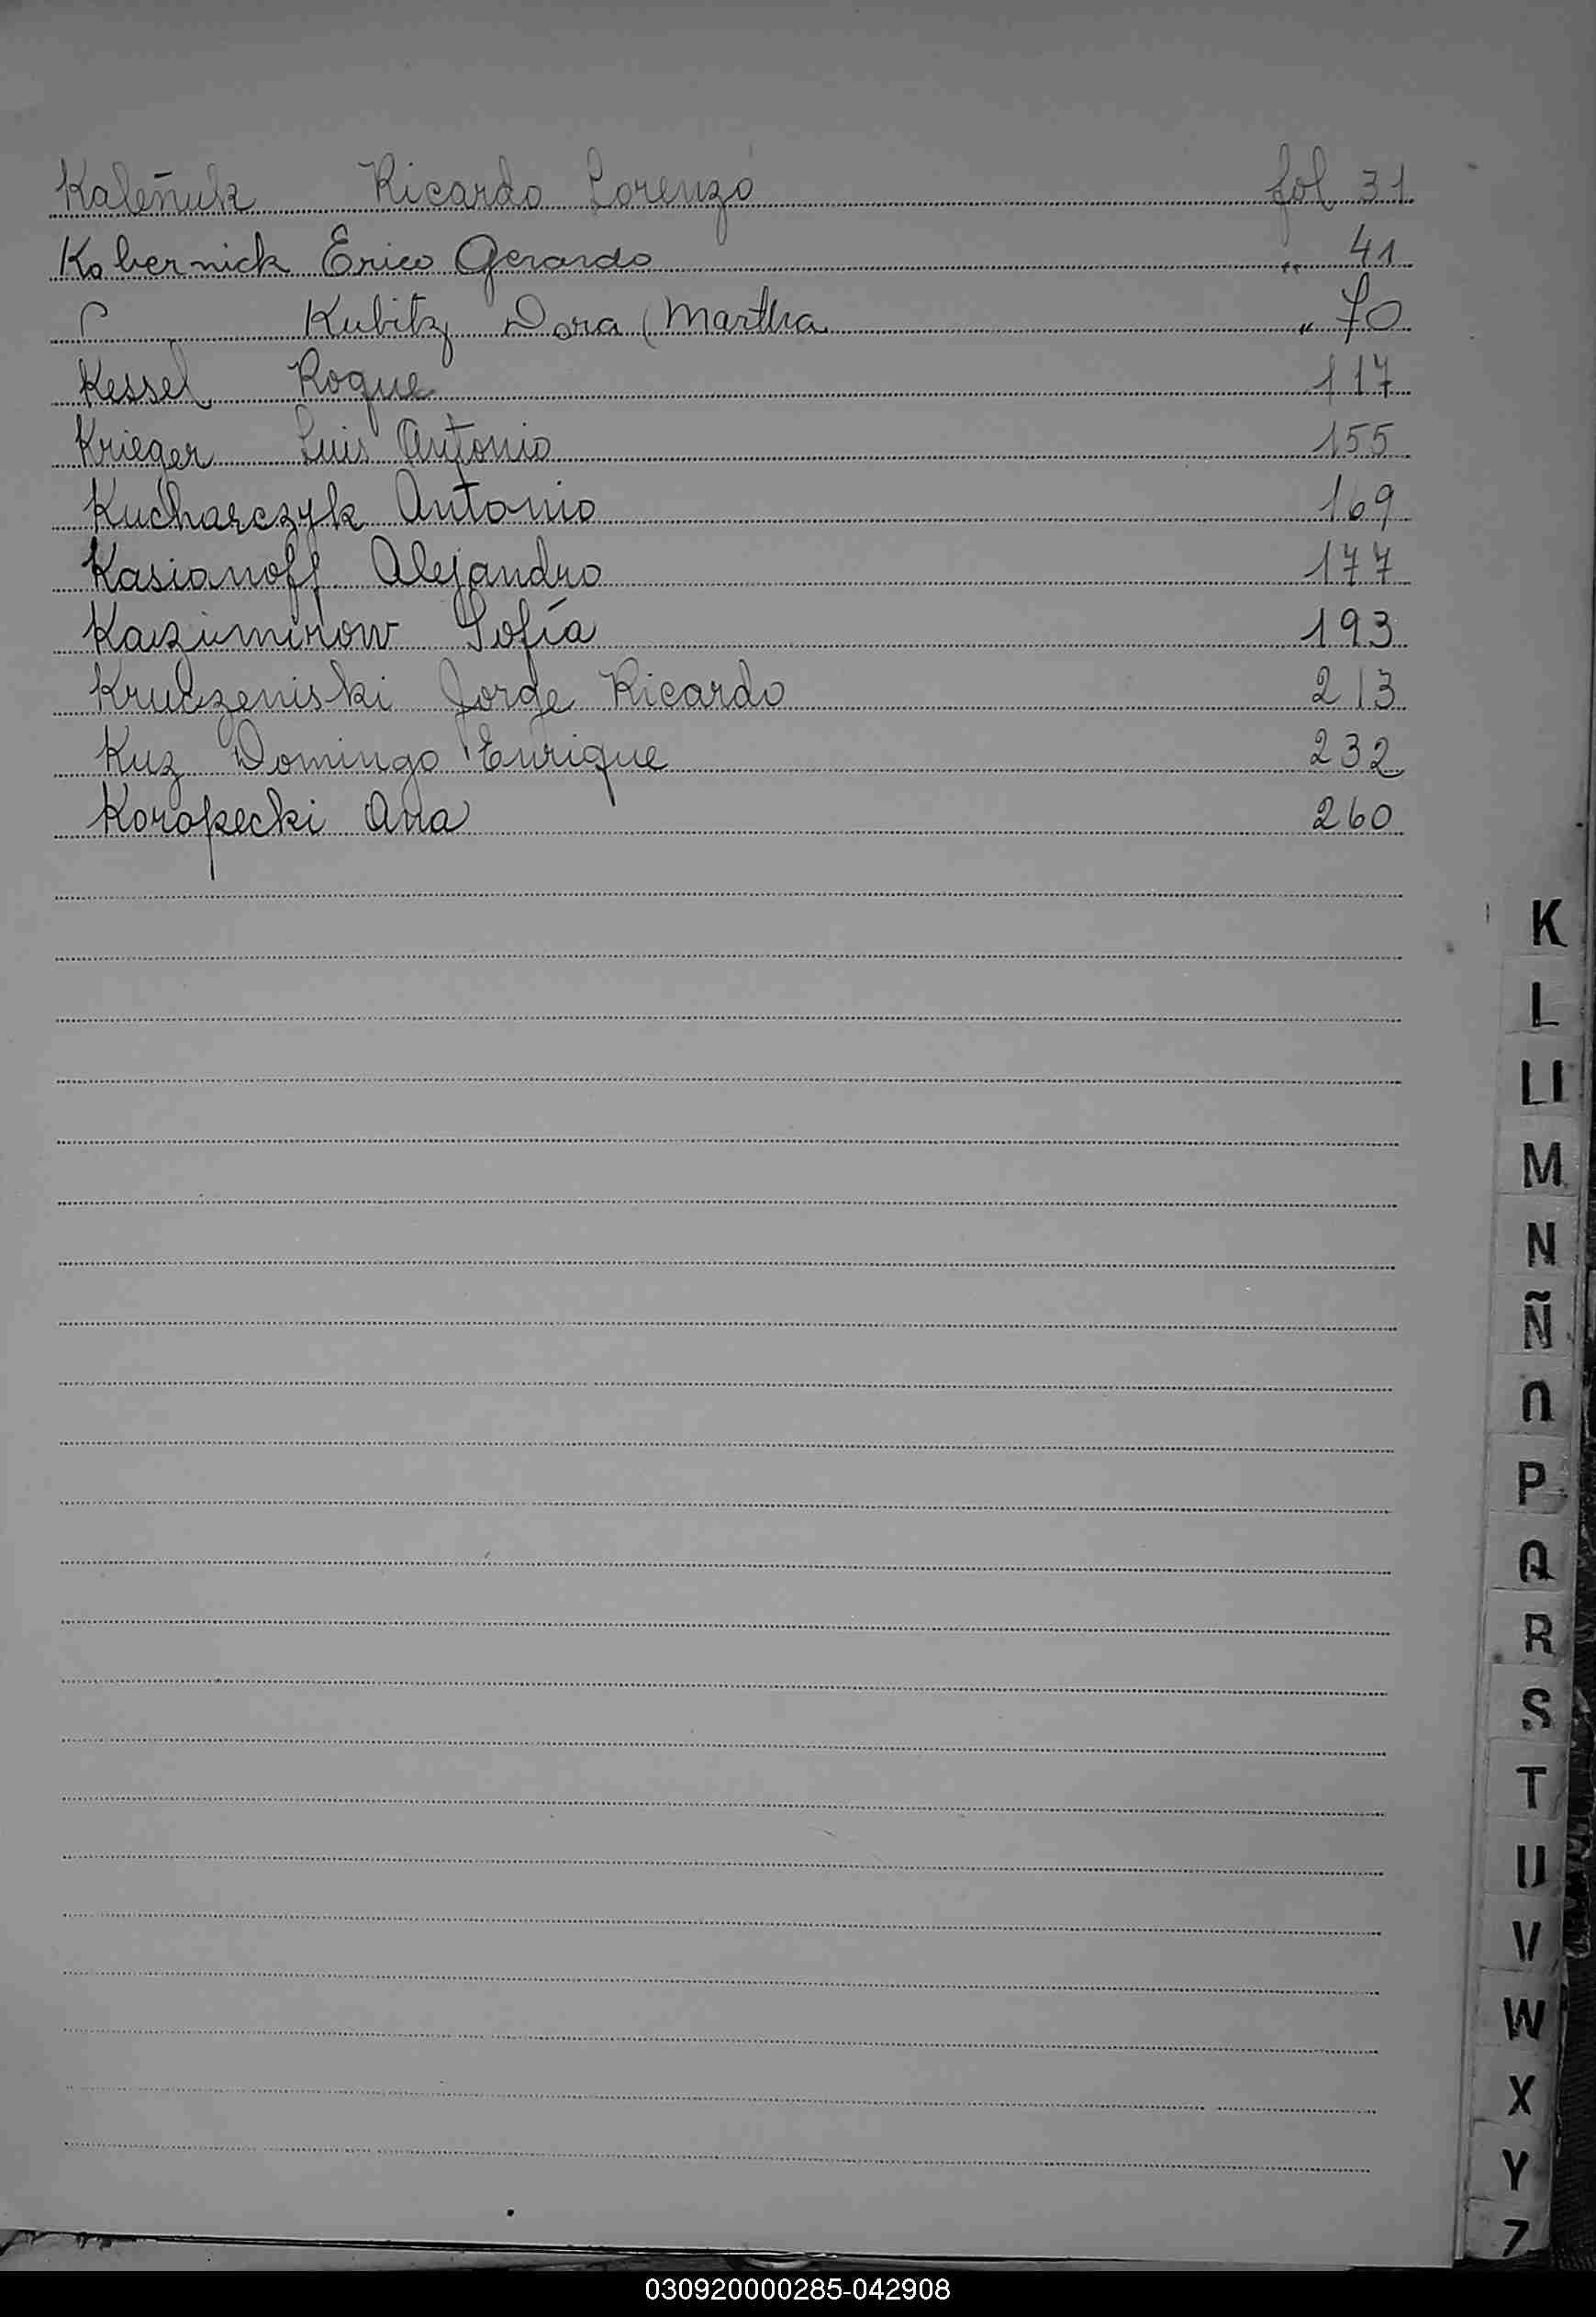 Kaleñuk Ricardo Lorenzo fol 31
Kobernick Erico Gerardo " 41
Kubitz Dora Martha " 70
Kessel Roque 117
Krieger Luis Antonio 155
Kucharczyk Antonio 169
Kasianoff Alejandro 177
Kazimirow Sofía 193
Kruczeniski Jorge Ricardo 213
Kuz Domingo Enrique 232
Koropecki Ana 260
K
L
Ll
M
N
Ñ
O
P
Q
R
S
T
U
V
W
X
Y
Z
030920000285-042908